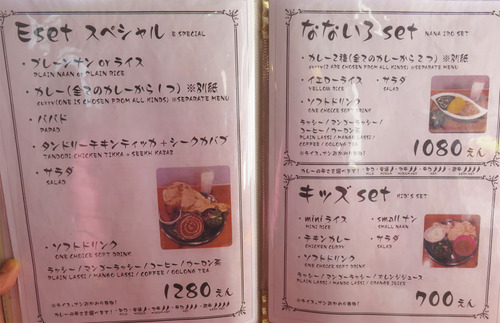 Eset スペシャル E SPECIAL
・プレーンナン or ライス
PLAIN NAAN or PLAIN RICE
・カレー(全てのカレーから1つ) ※別紙
CURRY(ONE IS CHOSEN FROM ALL KINDS) ※SEPARATE MENU
・パパド
PAPAD
・タンドリーチキンティッカ + シークカバブ
TANDORI CHICKEN TIKKA + SEEKH KABAB
・サラダ
SALAD
・ソフトドリンク
ONE CHOICE SOFT DRINK
ラッシー/マンゴーラッシー/コーヒー/ウーロン茶
PLAIN LASSI / MANGO LASSI / COFFEE / OOLONG TEA
1280えん
なないろ set NANA IRO SET
・カレー2種(全てのカレーから2つ) ※別紙
CURRY(2 ARE CHOSEN FROM ALL KINDS) ※SEPARATE MENU
・イエローライス ・サラダ
YELLOW RICE SALAD
・ソフトドリンク
ONE CHOICE SOFT DRINK
ラッシー/マンゴーラッシー/
コーヒー/ウーロン茶
PLAIN LASSI / MANGO LASSI /
COFFEE / OOLONG TEA
1080えん
キッズ set KID'S SET
・miniライス ・smallナン
MINI RICE SMALL NAAN
・チキンカレー ・サラダ
CHICKEN CURRY SALAD
・ソフトドリンク
ONE CHOICE SOFT DRINK
ラッシー/マンゴーラッシー/オレンジジュース
PLAIN LASSI / MANGO LASSI / ORANGE JUICE
700えん